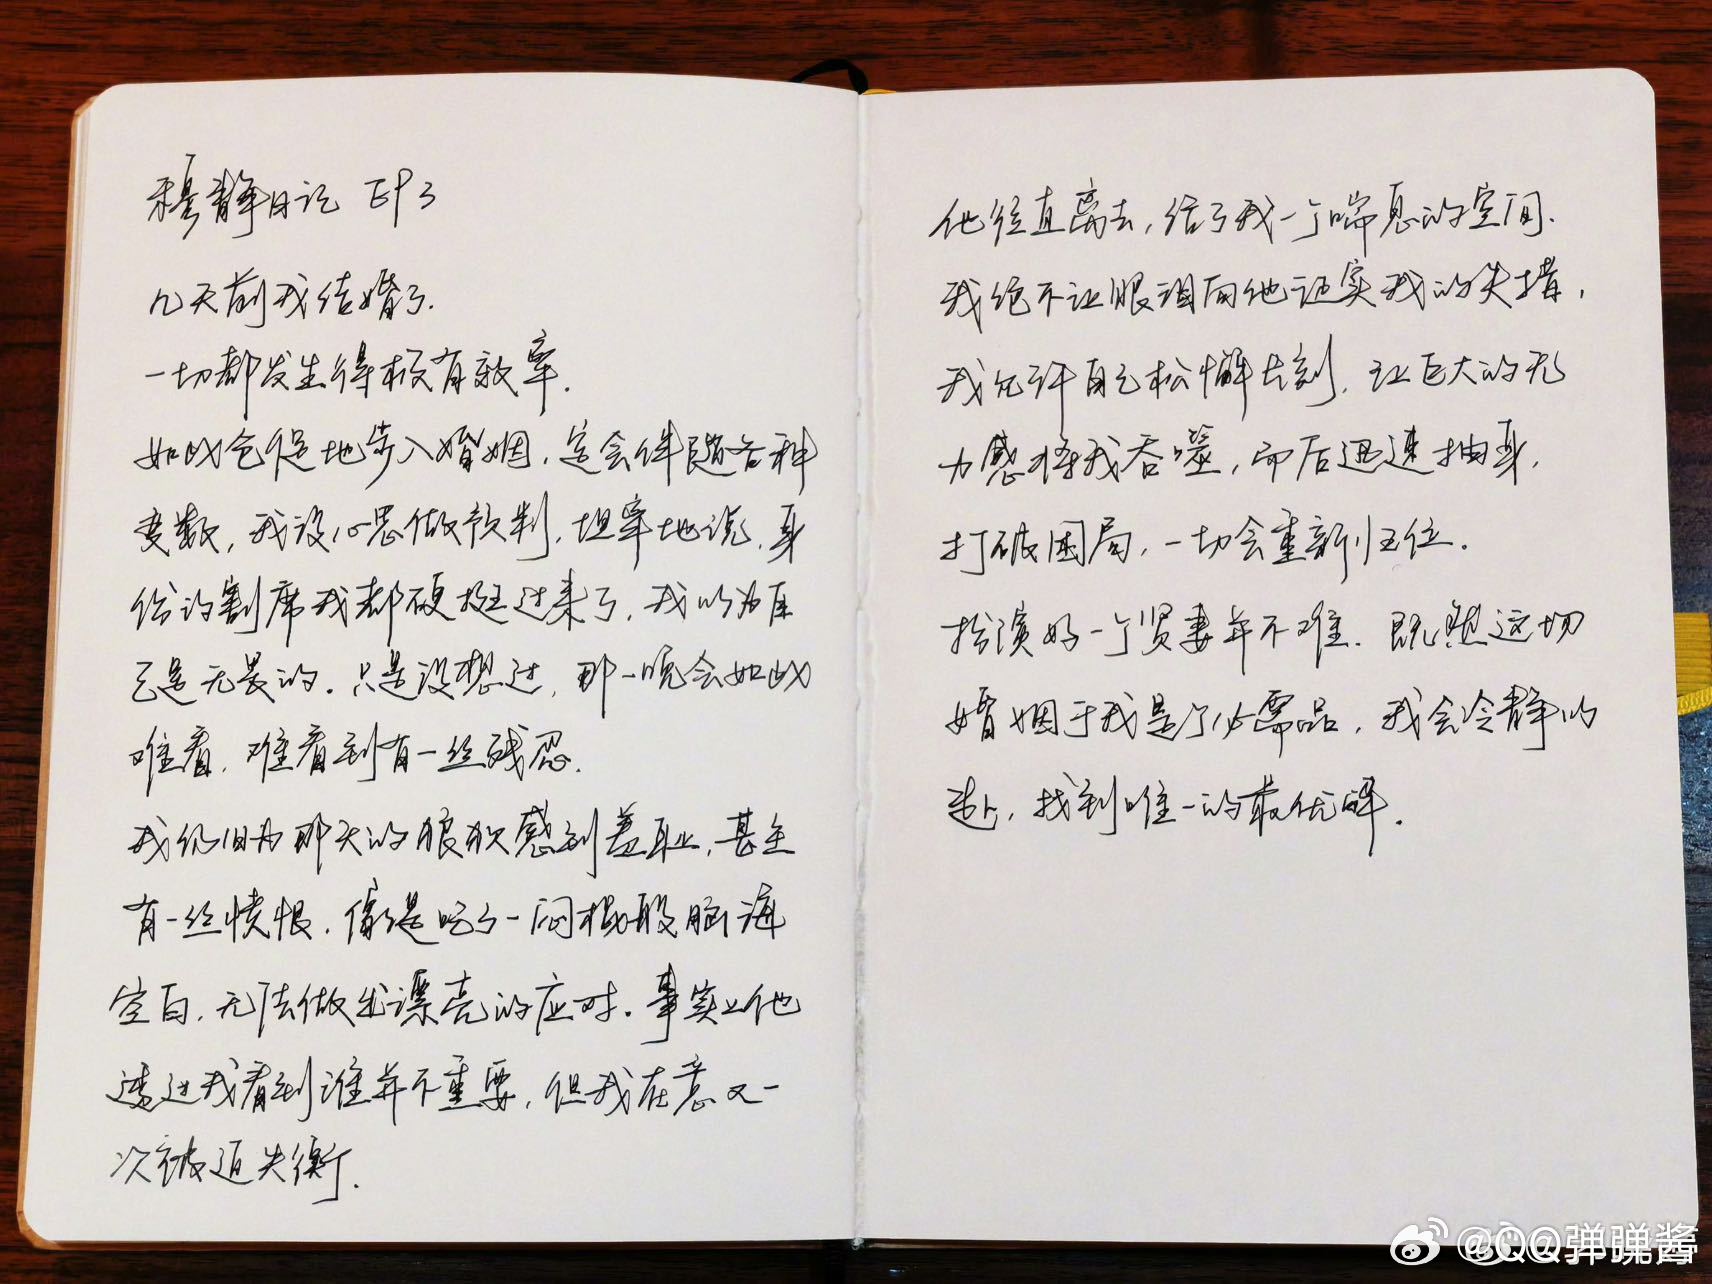 穆静日记 EP3
几天前我结婚了.
一切都发生得极有效率.
如此仓促地步入婚姻,定会伴随各种
变数,我没心思做预判,坦率地说,身
份的割席我都硬挺过来了,我以为自
己是无畏的.只是没想过,那一晚会如此
难看,难看到有一丝残忍.
我仍旧为那天的狼狈感到羞耻,甚至
有一丝愤恨.像是吃了一闷棍般脑海
空白,无法做出漂亮的应对.事实上他
透过我看到谁并不重要,但我在意又一
次被迫失衡.
他径直离去,给了我一个喘息的空间.
我绝不让眼泪向他证实我的失措,
我允许自己松懈片刻,让巨大的无
力感将我吞噬,而后迅速抽身,
打破困局,一切会重新归位.
扮演好一个贤妻并不难.既然这场
婚姻于我是个必需品,我会冷静的
赴,找到唯一的最优解.
@QQ弹弹酱